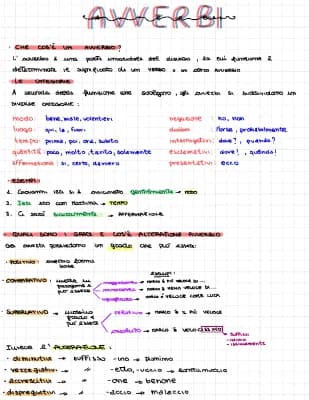 AVVERBI
• CHE COS'È UN AVVERBIO?
L'avverbio è una parte invariabile del discorso, la cui funzione è
determinare il significato di un verbo o un altro avverbio
• LE CATEGORIE
A seconda della funzione che svolgono, gli avverbi si suddividono in
diverse categorie:
modo: bene, male, volentieri
luogo: qui, là, fuori
tempo: prima, poi, ora, subito
quantità: poco, molto, tanto, solamente
affermazione: sì, certo, davvero
negazione: no, non
dubbio: forse, probabilmente
interrogativi: dove?, quando?
esclamativi: dove!, quando!
presentativi: ecco
• ESEMPI:
1. Giovanni ieri si è avvicinato gentilmente → MODO
2. Ieri sono con → TEMPO
3. Ci sarò sicuramente → AFFERMAZIONE
• QUALI SONO I GRADI E COS'È ALTERAZIONE AVVERBIO
Gli avverbi possiedono un grado che può essere:
• POSITIVO → avverbio forma
base
• COMPARATIVO → mette in
paragone e
può essere
ESEMPI:
maggioranza → MARCO È PIÙ VELOCE DI ...
minoranza → MARCO È MENO VELOCE DI ...
uguaglianza → MARCO È VELOCE COME LUCA
• SUPERLATIVO → massimo
grado e
può essere
relativo → MARCO È IL PIÙ VELOCE
assoluto → MARCO È VELOCISSIMO
suffisso
-issimo
-issimamente
Invece l'ALTERAZIONE:
- diminutivi → suffisso -ino → pianino
- vezzeggiativi → -etto, -uccio →
- accrescitivi → -one → benone
- dispregiativi → -accio → malaccio